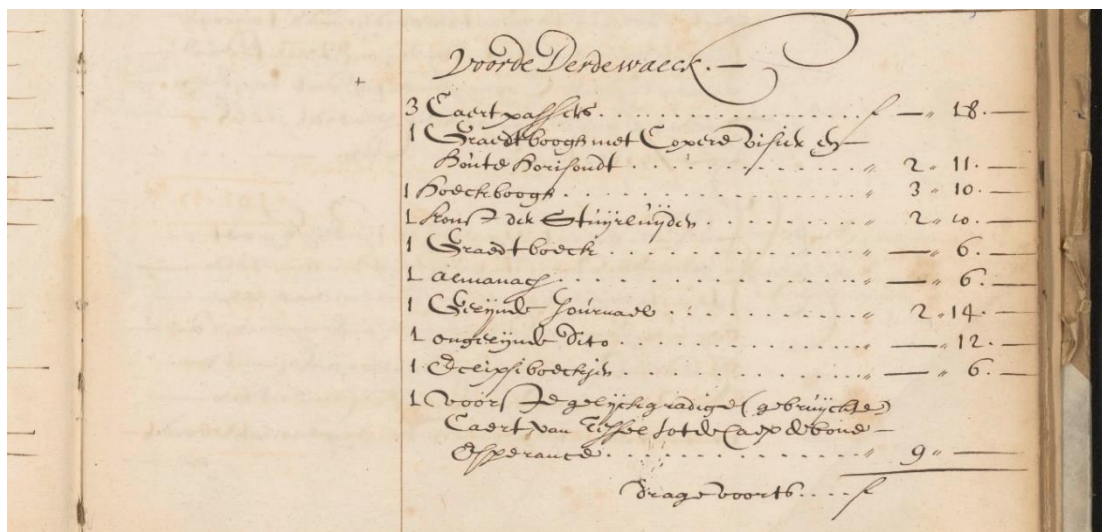 Voorde Derdewaeck. —
3 Caertpassers . . . . . . . . . . . . . . . . . f — " 18. —
1 Graedtboogh met Copere visier en —
houte horisondt . . . . . . . . . . . . . " 2 " 11. —
1 hoeckboogh . . . . . . . . . . . . . . . . " 3 " 10. —
1 konst der Stuijrluijden . . . . . . . . . " 2 " 10. —
1 Graedtboeck . . . . . . . . . . . . . . . " — " 6. —
1 almanach . . . . . . . . . . . . . . . . . " — " 6. —
1 Gelijnde Journael . . . . . . . . . . . " 2 " 14. —
1 ongelijnde dito . . . . . . . . . . . . . " — " 12. —
1 Eclipsiboeckjen . . . . . . . . . . . . . " — " 6. —
1 gelyckgradige (gebruijckte)
Caert van Tessel tot de Caep de bone —
Esperance . . . . . . . . . . . . . . " 9 " —
drage voorts . . . . f